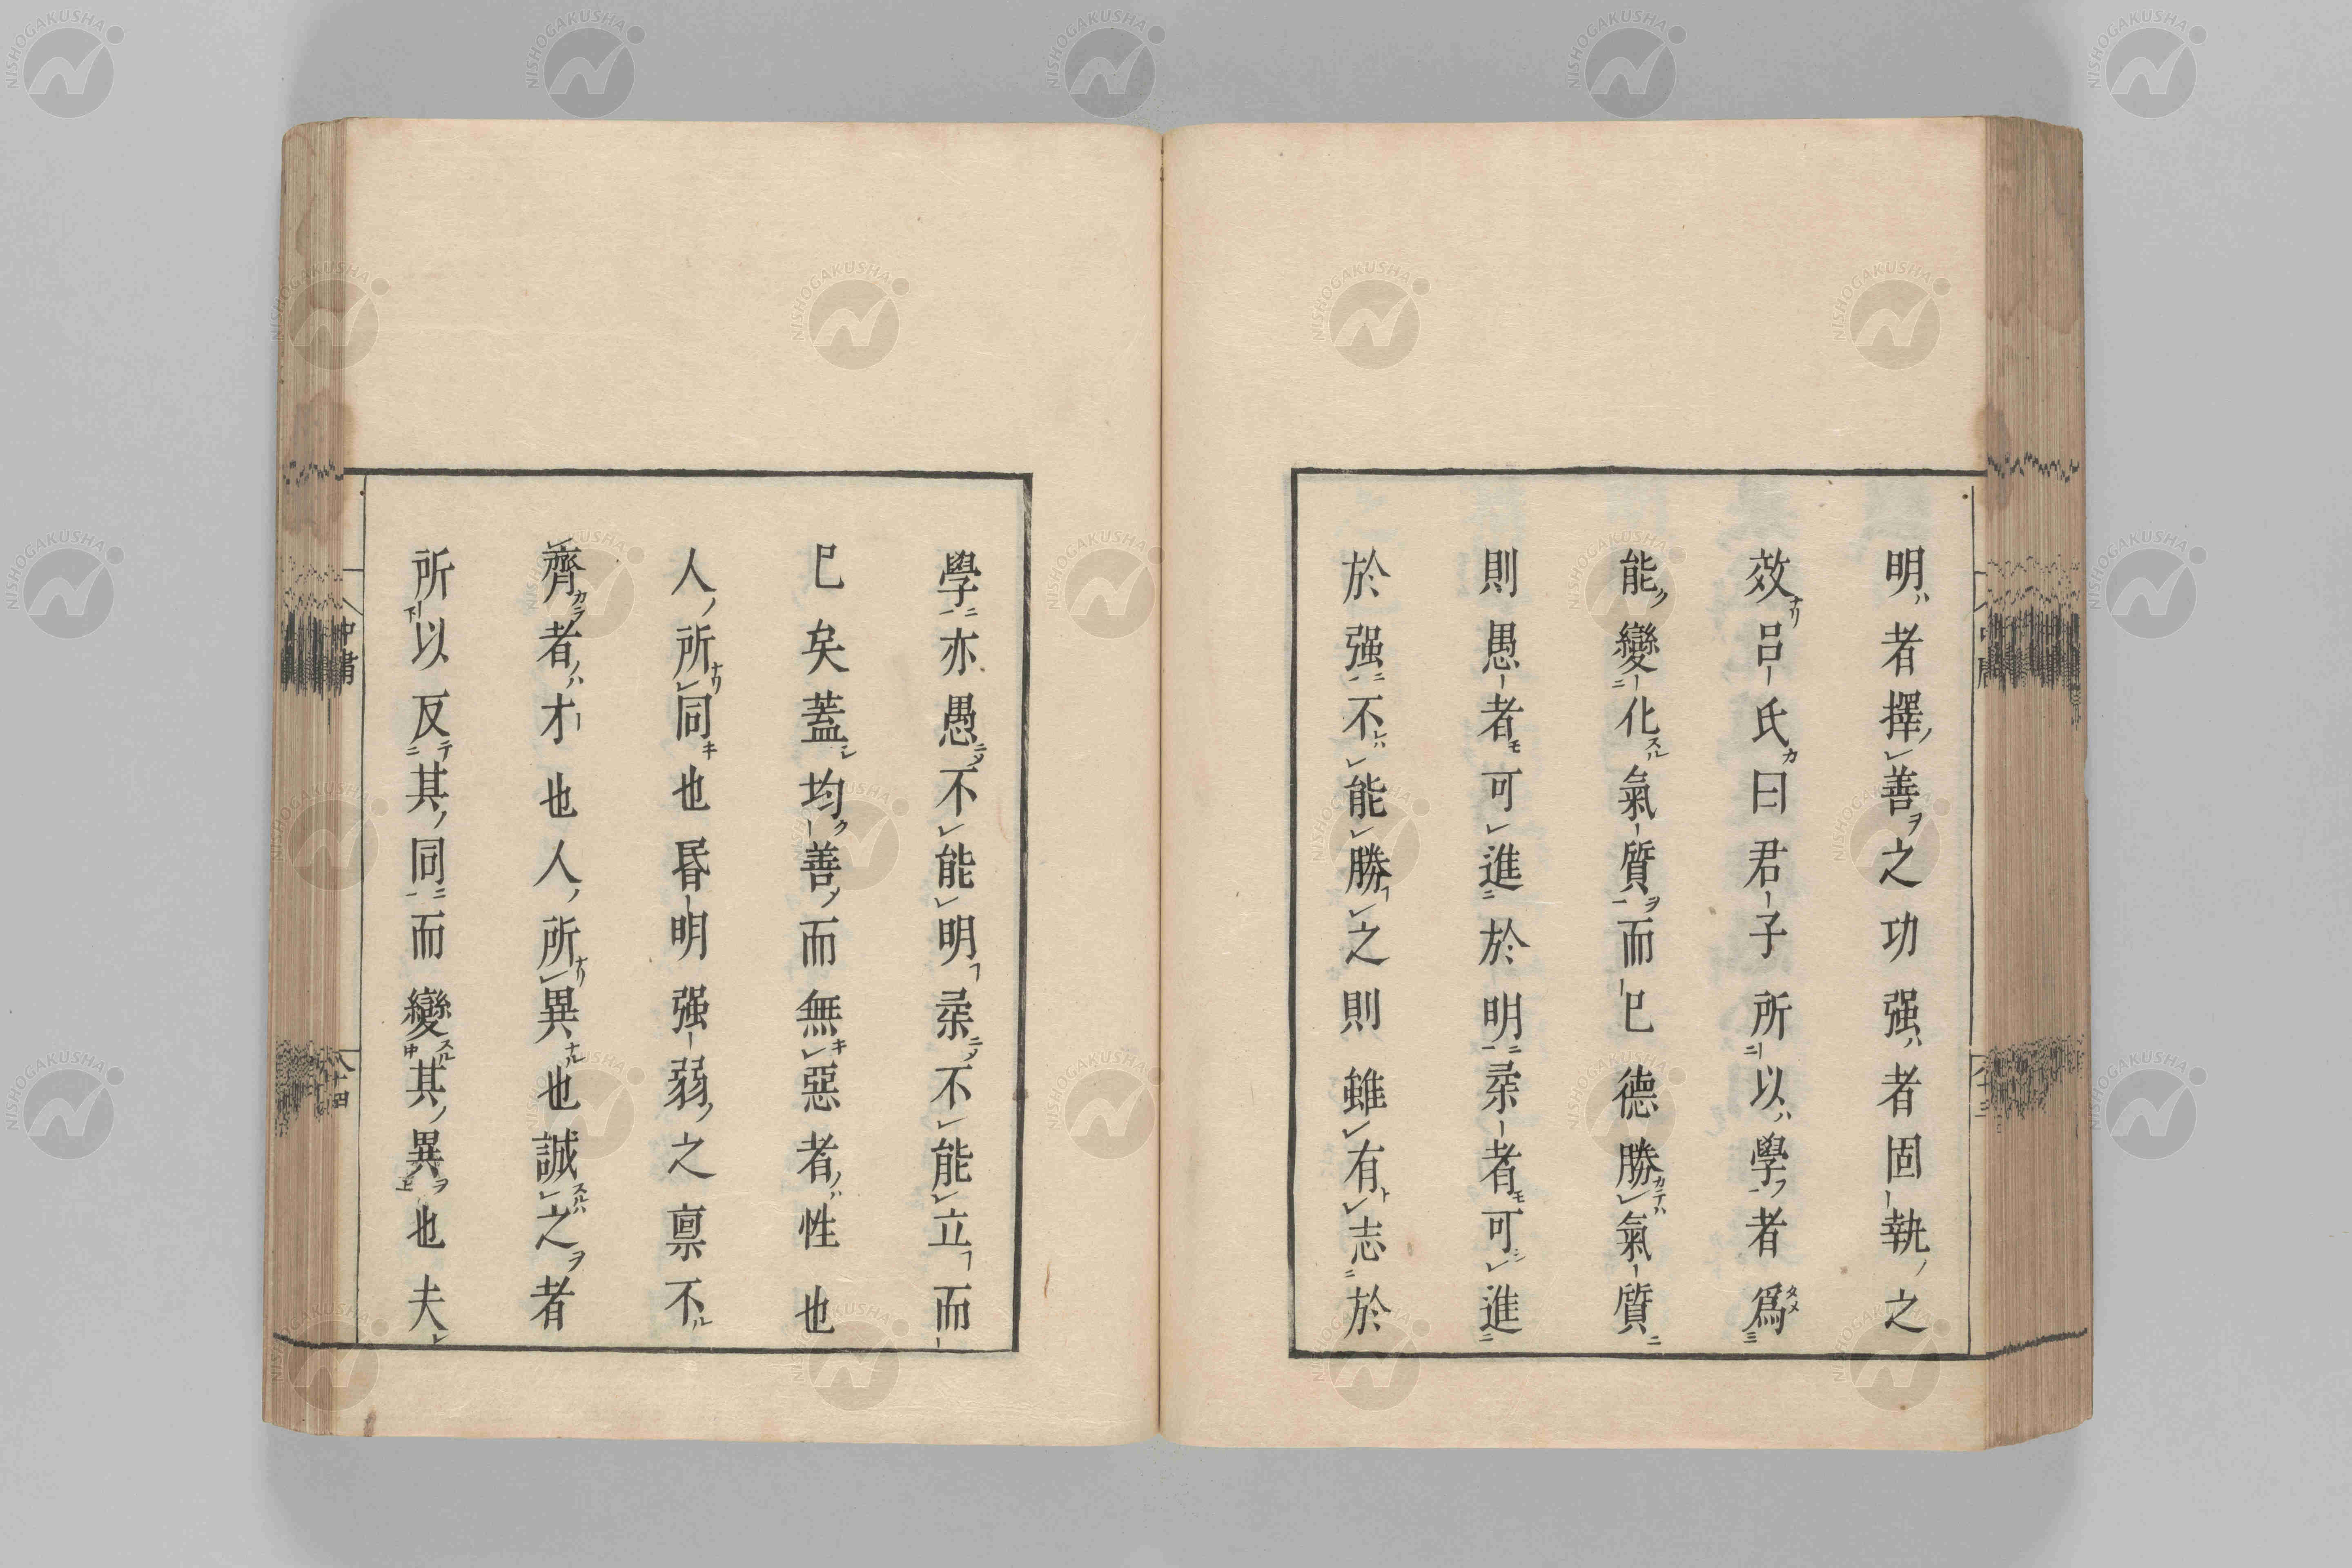 明者擇善之功强者固執之
效呂氏曰君子所以學者爲
能變化氣質而已德勝氣質
則愚者可進於明柔者可進
於强不能勝之則雖有志於
學亦愚不能明柔不能立而
已矣蓋均善而無惡者性也
人所同也昏明强弱之稟不
齊者才也人所異也誠之者
所以反其同而變其異也夫
中庸
八十四
NISHOGAKUSHA